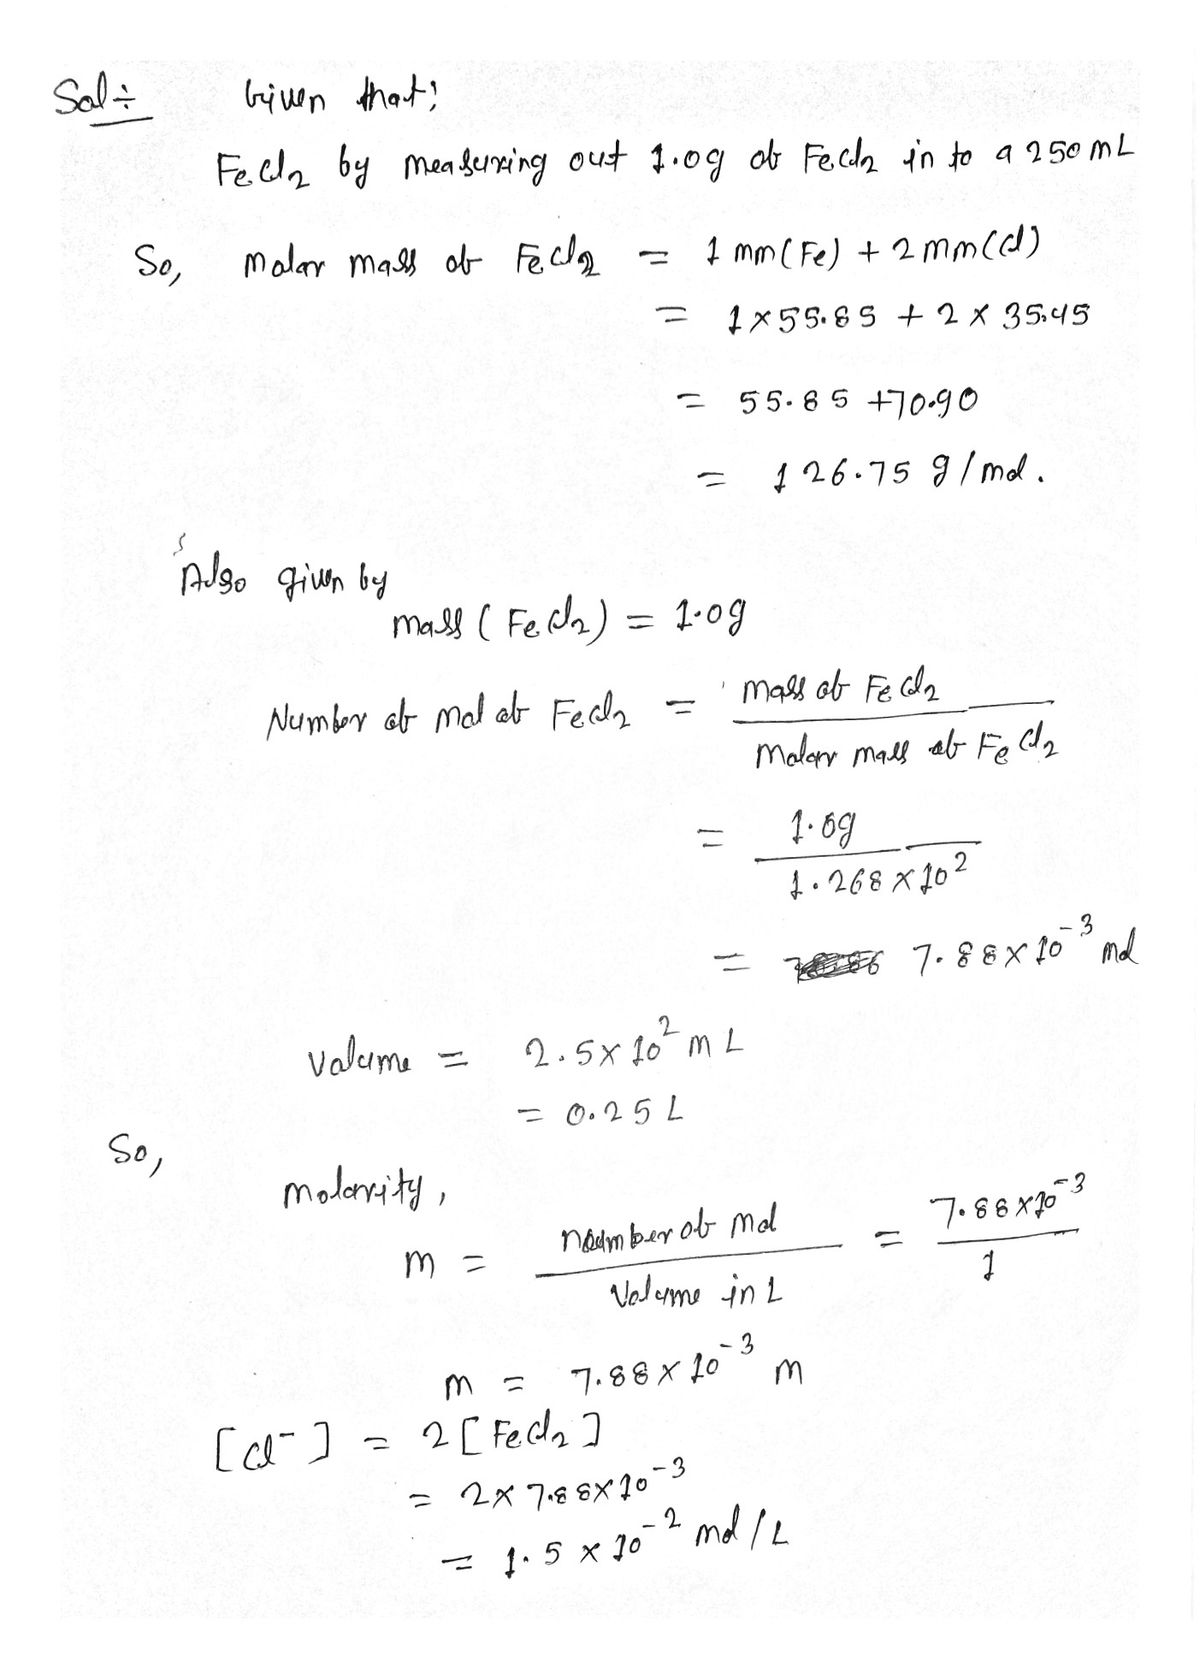 Sol ÷ Given that;
FeCl2 by measuring out 1.0g of FeCl2 in to a 250 mL
So, Molar mass of FeCl2 = 1 mm(Fe) + 2 mm(Cl)
= 1×55.85 + 2 × 35.45
= 55.85 +70.90
= 126.75 g/mol.
Also given by
mass (FeCl2) = 1.0g
Number of mol of FeCl2 = mass of FeCl2 / Molar mass of FeCl2
= 1.0g / 1.268×10^2
= 7.88×10^-3 mol
Volume = 2.5×10^2 mL
= 0.25 L
So, molarity,
m = number of mol / Volume in L = 7.88×10^-3 / 1
m = 7.88×10^-3 m
[Cl^-] = 2[FeCl2]
= 2×7.88×10^-3
= 1.5 × 10^-2 mol/L